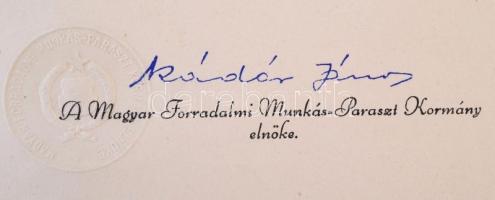 Kádár János
A Magyar Forradalmi Munkás-Paraszt Kormány
elnöke.